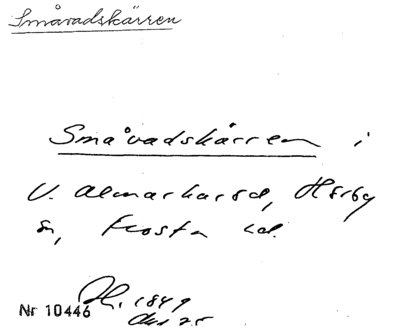 Småvadskärren
Småvadskärren i
V. Almarkarsd, Hörby
sn, Frosta hd.
H. 1849
Nr 10446